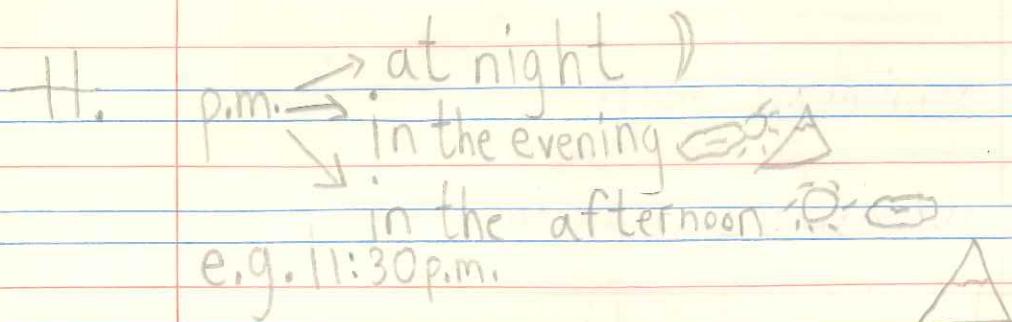 H.
p.m. at night
in the evening
in the afternoon
e.g. 11:30 p.m.